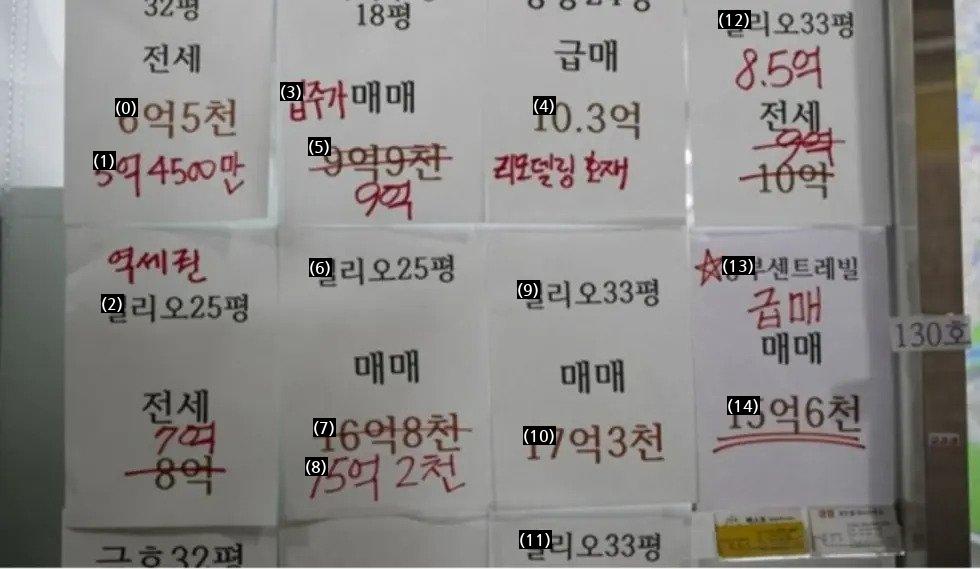 32평
전세
(0) 6억5천
(1) 5억 4500만
18평
(3) 입주가 매매
(5) 9억9천
9억
급매
(4) 10.3억
리모델링 호재
(12) 헬리오33평
8.5억
전세
9억
10억
역세권
(2) 헬리오25평
전세
7억
8억
(6) 헬리오25평
매매
(7) 16억8천
(8) 15억 2천
(9) 헬리오33평
매매
(10) 17억3천
☆(13) 동부센트레빌
급매
매매
(14) 15억6천
130호
금호32평
(11) 헬리오33평